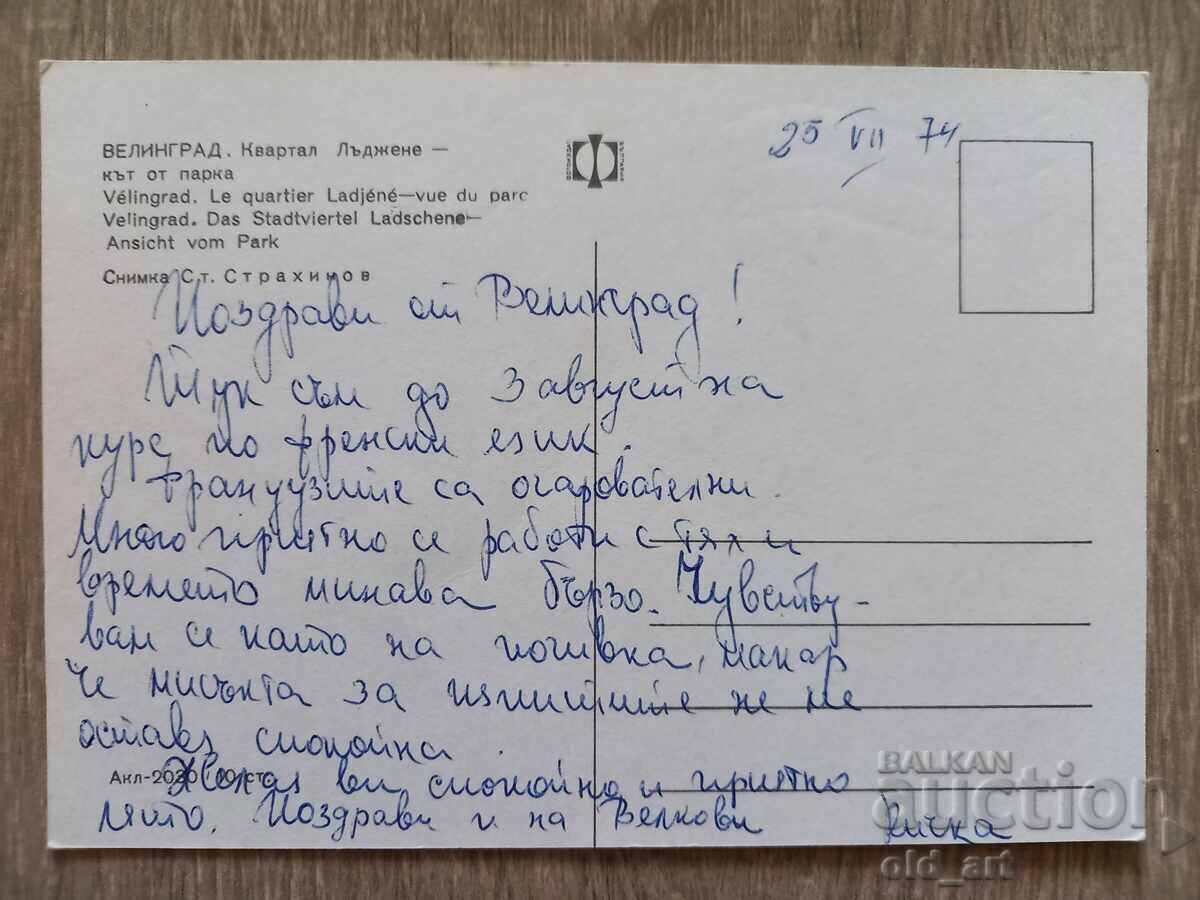 25 VII 74
ВЕЛИНГРАД. Квартал Лъджене —
кът от парка
Vélingrad. Le quartier Ladjéné—vue du parc
Velingrad. Das Stadtviertel Ladschene—
Ansicht vom Park
Снимка Ст. Страхимов
Поздрави от Велинград!
Тук съм до 3 август на
курс по френски език.
Французите са очарователни.
Много приятно се работи с тях и
времето минава бързо. Чувству-
вам се като на почивка, макар
че мисълта за изпитите не ме
оставя спокойна.
Акл-2020 10 ст.
Желая ви спокойно и приятно
лято. Поздрави и на Велкови
BALKAN
auction
old_art